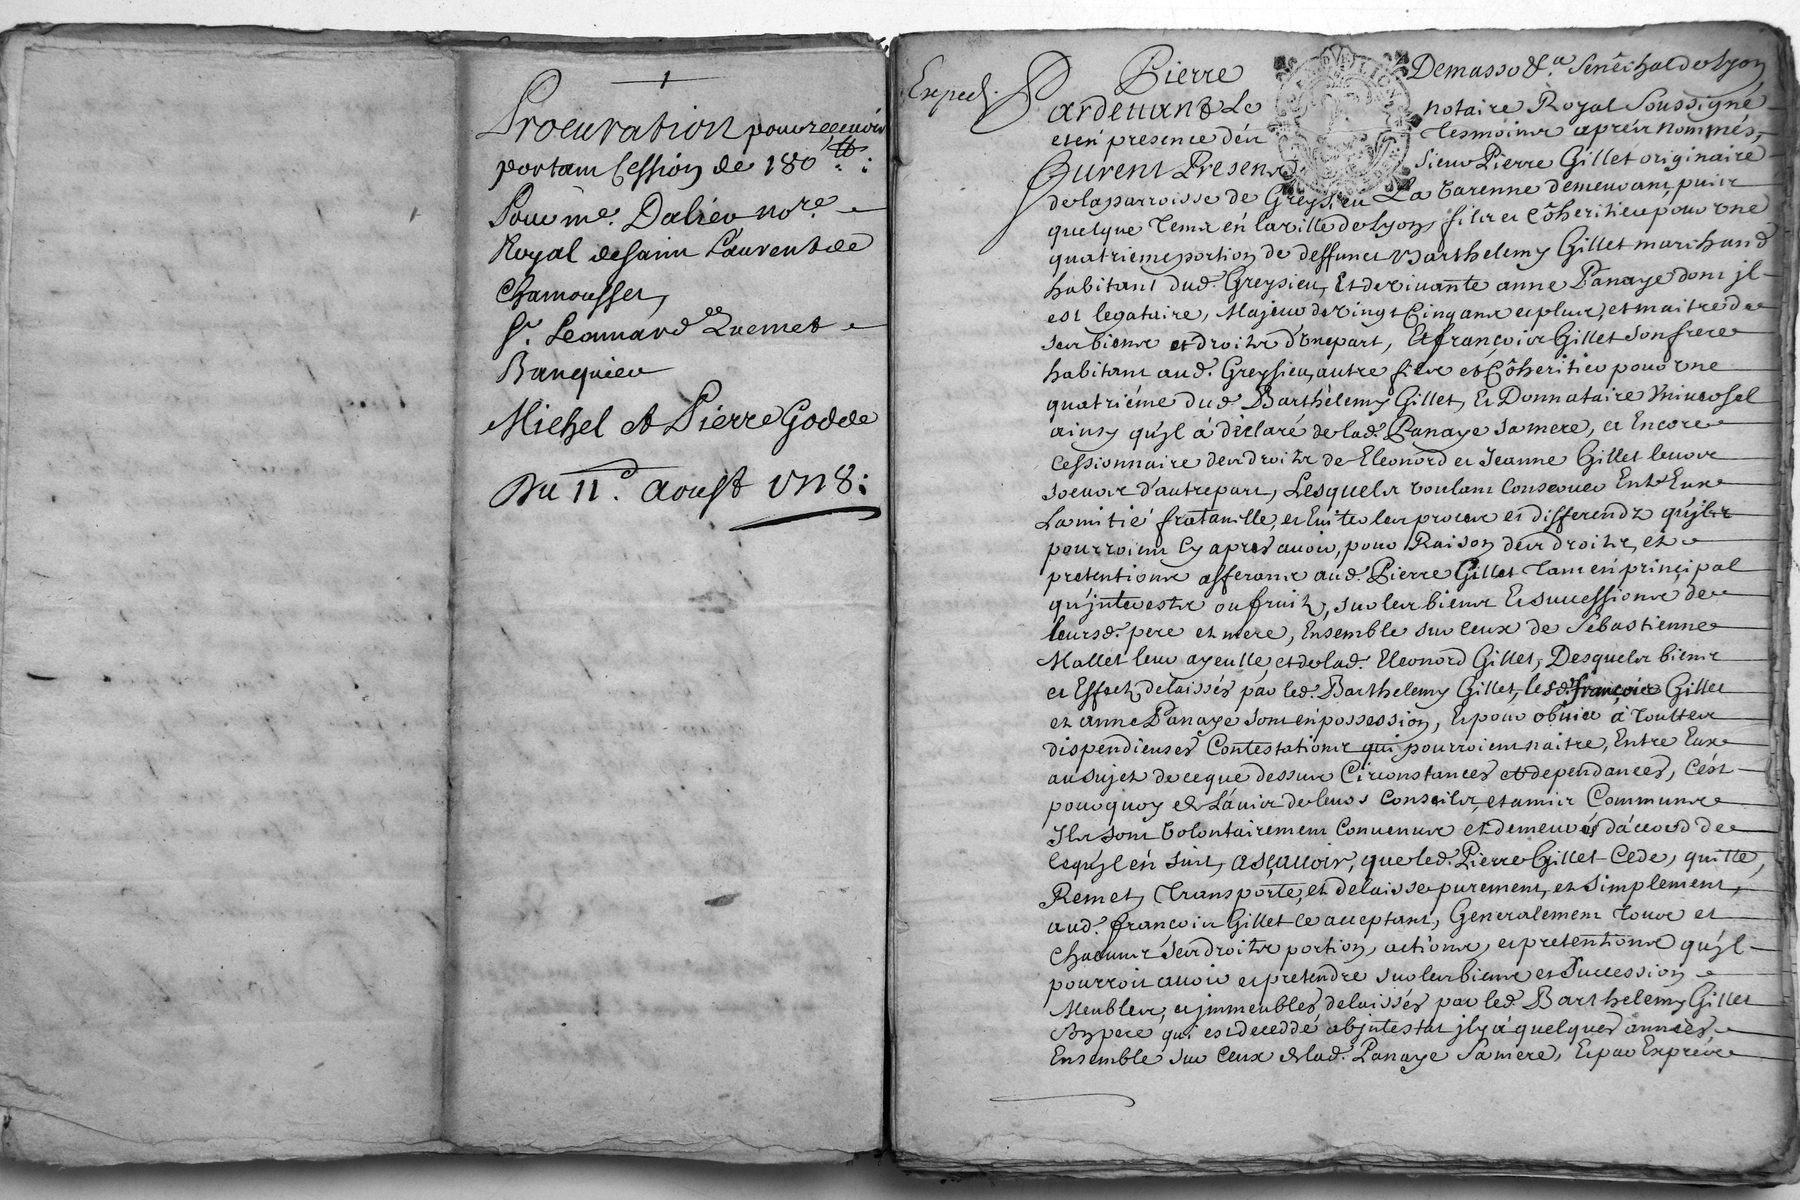 Procuration pour recevoir
portant Cession de 180 ₶:
Pour me. Dalieu nore.
Royal de saint Laurent de
Chamousset,
Sr. Leonnard
Banquier
Michel et Pierre Godde
Du 11d. aoust 1718:
Exped.
Pierre Demasso &a. Senéchal de Lyon
Pardevant Le notaire Royal soussigné
et en presence des tesmoins aprés nommés,
Furent Presens sieur Pierre Gillet originaire
de la parroisse de Greysieu La Varenne demeurant puis
quelque tems en la ville de Lyon, fils et cōheritier pour une
quatrieme portion de deffunct Barthelemy Gillet marchand
habitant dud. Greysieu, Et de vivante anne Panaye dont jl
est legataire, Majeur de vingt Cinq ans et plus, et maitre de
ses biens et droits d'une part, Et françois Gillet son frere
habitant aud. Greysieu, autre fils et Cōheritier pour une
quatriéme dud. Barthelemy Gillet, Et Donnataire Universel
ainsy qu'jl a déclaré de lad. Panaye sa mere, et Encore
Cessionnaire des droits de Eleonord et Jeanne Gillet leurs
soeurs d'autre part, Lesquels voulant Conserver Entr'Eux
Lamitié fraternelle, et Eviter les procès et differendz qu'jls
pourroient Cy aprés avoir, pour Raison des droits, et
pretentions afferants aud. Pierre Gillet tant en principal
qu'jnterests ou fruits, sur les biens Et successions de
leursd. pere et mere, Ensemble sur ceux de Sebastienne
Mallet leur ayeulle, et de lad. Eleonord Gillet, Desquels biens
et Effects delaissés par led. Barthelemy Gillet, lesd. françois Gillet
et anne Panaye sont en possession, Et pour obvier à toutes
dispendieuses Contestations qui pourroient naitre, Entre Eux
au sujet de ce que dessus Circonstances et dependances, C'est
pourquoy de L'avis de leurs Conseils, et amis Communs
Ils sont volontairement Convenus et demeurés d'accord de
ce qu'jl en suit, asçavoir, que led. Pierre Gillet Cede, quitte,
Remet, Transporte, et delaisse purement, et simplement,
aud. françois Gillet ce acceptant, Generalement tous et
chacuns ses droits portion, actions, et pretentions qu'jl
pourroit avoir et pretendre sur les biens et Succession
Meubles, et jmmeubles delaissés par led. Barthelemy Gillet
son pere qui est decedé abjntestat jl y a quelques années,
Ensemble sur Ceux de lad. Panaye sa mere, Et par Exprés